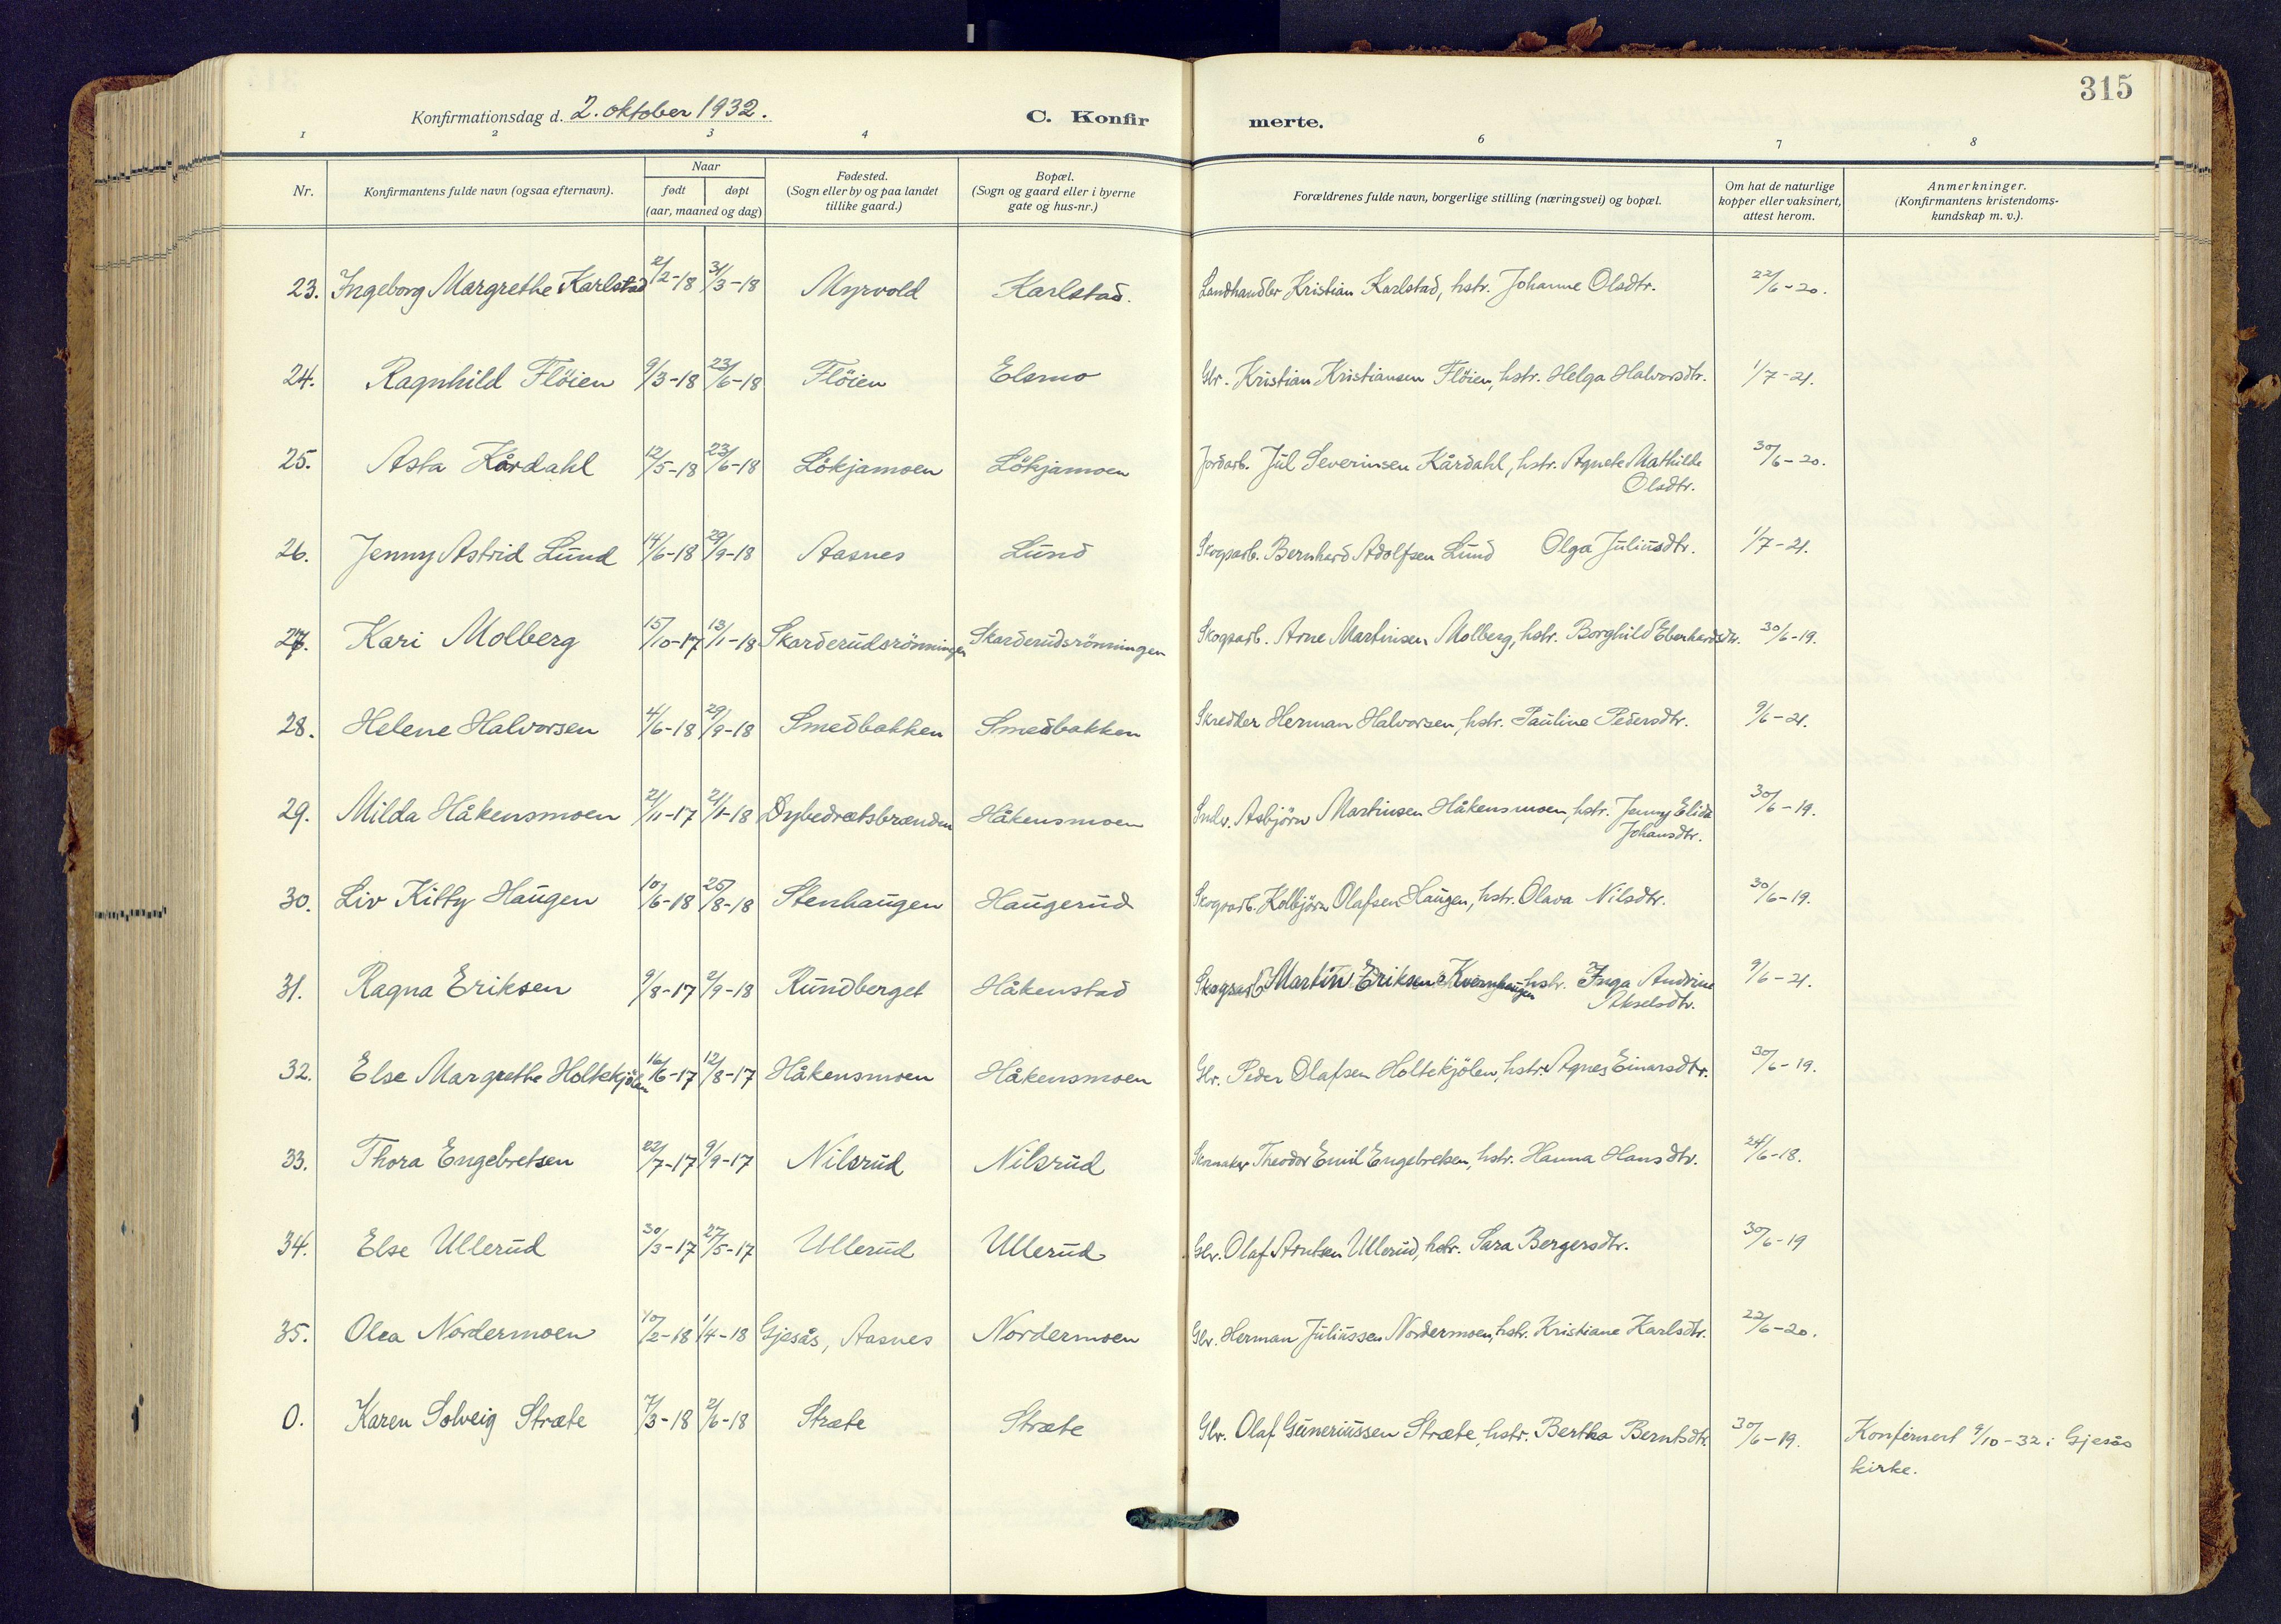 315
Konfirmationsdag d. 2. oktober 1932.
C. Konfir merte.
1 2 3 4 6 7 8
Nr. Konfirmantens fulde navn (ogsaa efternavn). Naar født døpt (aar, maaned og dag) Fødested. (Sogn eller by og paa landet tillike gaard.) Bopæl. (Sogn og gaard eller i byerne gate og hus-nr.) Forældrenes fulde navn, borgerlige stilling (næringsvei) og bopæl. Om hat de naturlige kopper eller vaksinert, attest herom. Anmerkninger. (Konfirmantens kristendoms-kundskap m. v.).
23. Ingeborg Margrethe Karlstad 2/2-18 31/3-18 Myrvold Karlstad. Landhandler Kristian Karlstad, hstr. Johanne Olsdtr. 22/6-20.
24. Ragnhild Flöien 9/3-18 23/6-18 Flöien Elsmo Glr. Kristian Kristiansen Flöien, hstr. Helga Halvorsdtr. 1/7-21.
25. Asta Kårdahl 12/5-18 23/6-18 Lökjamoen Lökjamoen Jordarb. Jul Severinsen Kårdahl, hstr. Agnete Mathilde
Olsdtr. 30/6-20.
26. Jenny Astrid Lund 14/6-18 29/9-18 Aasnes Lund Skogsarb. Bernhard Adolfsen Lund Olga Juliusdtr. 1/7-21.
27. Kari Molberg 15/10-17 13/1-18 Skarderudsrönningen Skarderudsrönningen Skogsarb. Arne Martinsen Molberg, hstr. Borghild Eberhardsdtr. 30/6-19.
28. Helene Halvorsen 4/6-18 29/9-18 Smedbakken Smedbakken Skredder Herman Halvorsen, hstr. Pauline Pedersdtr. 9/6-21.
29. Milda Håkensmoen 21/11-17 21/1-18 Dybedrætsbrænden Håkensmoen Asbjörn Martinsen Håkensmoen, hstr. Jenny Elida
Johansdtr. 30/6-19.
30. Liv Kitty Haugen 10/6-18 25/8-18 Stenhaugen Haugerud Skogsarb. Kolbjörn Olafsen Haugen, hstr. Olava Nilsdtr. 30/6-19.
31. Ragna Eriksen 9/8-17 2/9-18 Rundberget Håkenstad Skogsarb. Martin Eriksen Kvernhaugen hstr. Inga Andrine
Akselsdtr. 9/6-21.
32. Else Margrethe Holtekjölen 16/6-17 12/8-17 Håkensmoen Håkensmoen Glr. Peder Olafsen Holtekjölen, hstr. Agnes Einarsdtr. 30/6-19.
33. Thora Engebretsen 22/7-17 9/9-17 Nilsrud Nilsrud Skomaker Theodor Emil Engebretsen, hstr. Hanna Hansdtr. 24/6-18.
34. Else Ullerud 30/3-17 27/5-17 Ullerud Ullerud Glr. Olaf Arntsen Ullerud, hstr. Sara Bergersdtr. 30/6-19
35. Olea Nordermoen 10/2-18 1/4-18 Gjesås, Aasnes Nordermoen Glr. Herman Juliussen Nordermoen, hstr. Kristiane Karlsdtr. 22/6-20.
0. Karen Solveig Stræte 7/3-18 2/6-18 Stræte Stræte Glr. Olaf Guneriussen Stræte, hstr. Bertha Berntsdtr. 30/6-19. Konfirmert 9/10-32 i Gjesås
kirke.